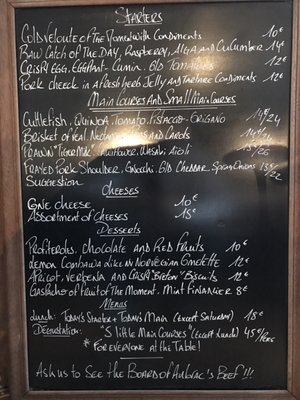 STARTERS
Cold veloute of the Moment with Condiments 10€
RAW CATCH OF THE DAY, RASPBERRY, ALGA AND CUCUMBER 14€
CRISPY EGG, EGGPLANT - CUMIN, OLD TOMATOES 12€
PORK CHEEK IN A FRESH HERB JELLY AND TARTARE CONDIMENTS 12€
MAIN COURSES AND SMALL MAIN COURSES
CUTTLEFISH, QUINOA, TOMATO, PISTACCIO - ORIGANO 14/24
BRISKET OF VEAL, AND CAROTS 14/
PRAWN "TIGER MILK", CAULIFLOWER, WASABI AIOLI 15/26
FRAYED PORK SHOULDER, GNOCCHI, OLD CHEDDAR, SPRING ONIONS 13.5/22
SUGGESTION
CHEESES
ONE CHEESE 10€
ASSORTMENT OF CHEESES 15€
DESSERTS
PROFITEROLES, CHOCOLATE AND RED FRUITS 10€
LEMON COMBAWA LIKE IN NORVEGIAN OMELETTE 12€
APRICOT, VERBENA AND CRISPY "BRETON" BISCUITS 12€
GASPACHO OF FRUIT OF THE MOMENT, MINT FINANCIER 8€
MENUS
LUNCH: TODAY'S STARTER + TODAY'S MAIN (EXCEPT SATURDAY) 18€
DEGUSTATION: "5 LITTLE MAIN COURSES" (EXCEPT LUNCH) 45€/PERS
* FOR EVERYONE AT THE TABLE!
ASK US TO SEE THE BOARD OF AUBRAC'S BEEF!!!